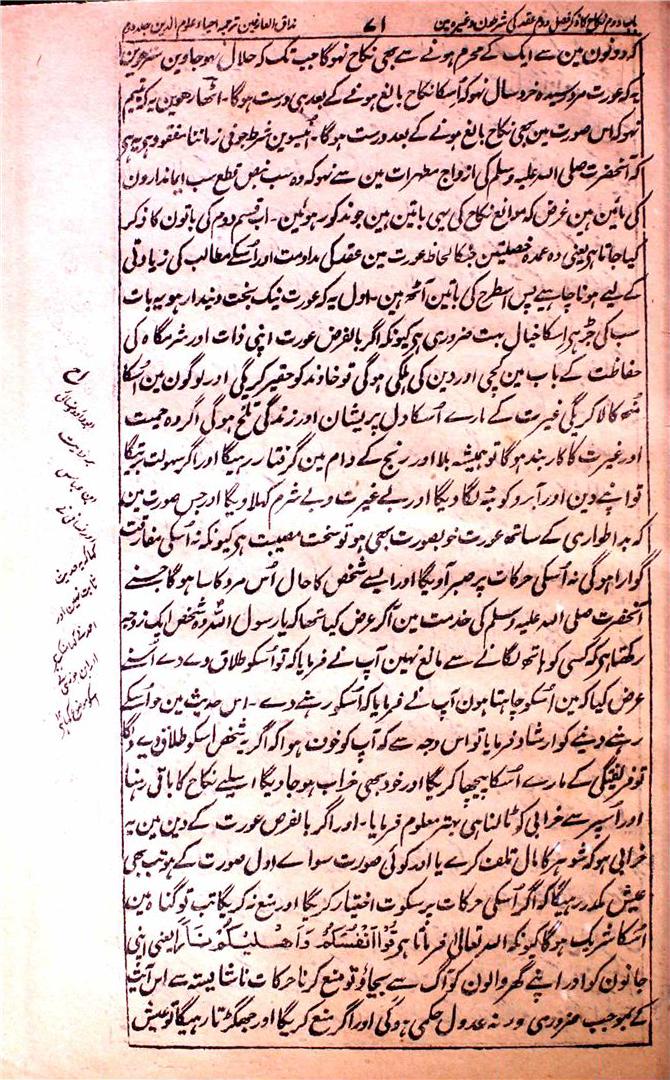 باب دوم نکاح کا ذکر فصل دوم عقد کی شرطون وغیرہ مین
۷۱
مذاق العارفین ترجمہ احیاء علوم الدین جلد دوم
کہ دونون مین سے ایک کے محرم ہونے سے بھی نکاح نہوگا جب تک کہ حلال نہو جاوین سترھوین
یہ کہ عورت شوہر رسیدہ خرد سال نہو کہ اُسکا نکاح بالغ ہونے کے بعد ہی درست ہوگا۔ اٹھارھوین یہ کہ یتیم
نہو کہ اس صورت مین بھی نکاح بالغ ہونے کے بعد درست ہوگا۔ اُنیسوین شرط جو فی زماننا مفقود ہی یہ ہی
کہ آنحضرت صلی اللہ علیہ وسلم کی ازواج مطہرات مین سے نہو کہ وہ سب نص قطع سب ایماندارون
کی مائین ہین غرض کہ موانع نکاح کی یہی باتین ہین جو مذکور ہوئین۔ اب قسم دوم کی باتون کا ذکر
کیا جاتا ہی یعنی وہ عمدہ خصلتین جنکا لحاظ عورت مین عقد کی مداومت اور اُسکے مطالب کی زیادتی
کے لیے ہونا چاہیے پس اسطرح کی باتین آٹھ ہین۔ اول یہ کہ عورت نیک بخت دیندار ہو یہ بات
سب کی جڑ ہی اسکا خیال بہت ضروری ہی کیونکہ اگر بالفرض عورت اپنی ذات اور شرمگاہ کی
حفاظت کے باب مین کچی اور دین کی ہلکی ہوگی تو خاوند کو حقیر کریگی اور لوگون مین اُسکا
منھ کالا کریگی غیرت کے مارے اُسکا دل پریشان اور زندگی تلخ ہوگی اگر وہ حمیت
اور غیرت کا کاربند ہوگا تو ہمیشہ بلا اور رنج کے دام مین گرفتار رہیگا اور اگر سہولت برتیگا
تو اپنے دین اور آبرو کو بٹہ لگا دیگا اور بے غیرت و بے شرم کہلاویگا اور جس صورت مین
کہ بد اطواری کے ساتھ عورت خوبصورت بھی ہو تو سخت مصیبت ہی کیونکہ نہ اُسکی مفارقت
گوارا ہوگی نہ اُسکی حرکات پر صبر آویگا اور ایسے شخص کا حال اُس مرد کا سا ہوگا جسنے
آنحضرت صلی اللہ علیہ وسلم کی خدمت مین آکر عرض کیا تھا کہ یا رسول اللہ وہ شخص ایک زوجہ
رکھتا ہی کہ کسی کو ہاتھ لگانے سے مانع نہین آپ نے فرمایا کہ تو اُسکو طلاق دے دے اُسنے
عرض کیا کہ مین اُسکو چاہتا ہون آپ نے فرمایا کہ اُسکو رہنے دے۔ اس حدیث مین جو اُسکے
رہنے دینے کو ارشاد فرمایا تو اس وجہ سے کہ آپ کو خوف ہوا کہ اگر یہ شخص اسکو طلاق دے دیگا
تو فریفتگی کے مارے اُسکا پیچھا کریگا اور خود بھی خراب ہو جاویگا اسلیے نکاح کا باقی رہنا
اور اُسپر سے خرابی کو ٹالنا ہی بہتر معلوم فرمایا۔ اور اگر بالفرض عورت کے دین مین یہ
خرابی ہو کہ شوہر کا مال تلف کرے یا اور کوئی صورت سواے اول صورت کے ہو تب بھی
عیش مکدر رہیگا کہ اگر اُسکی حرکات پر سکوت اختیار کریگا اور منع نہ کریگا تب تو گناہ مین
اُسکا شریک ہوگا کیونکہ اللہ تعالیٰ فرماتا ہی قُوْا اَنْفُسَكُمْ وَاَهْلِيْكُمْ نَارًا یعنی اپنی
جانون کو اور اپنے گھر والون کو آگ سے بچاؤ تو منع کرنا حرکات ناشایستہ سے اس آیت
کے بموجب ضروری ورنہ عدول حکمی ہوگی اور اگر منع کریگا اور جھگڑتا رہیگا تو عیش